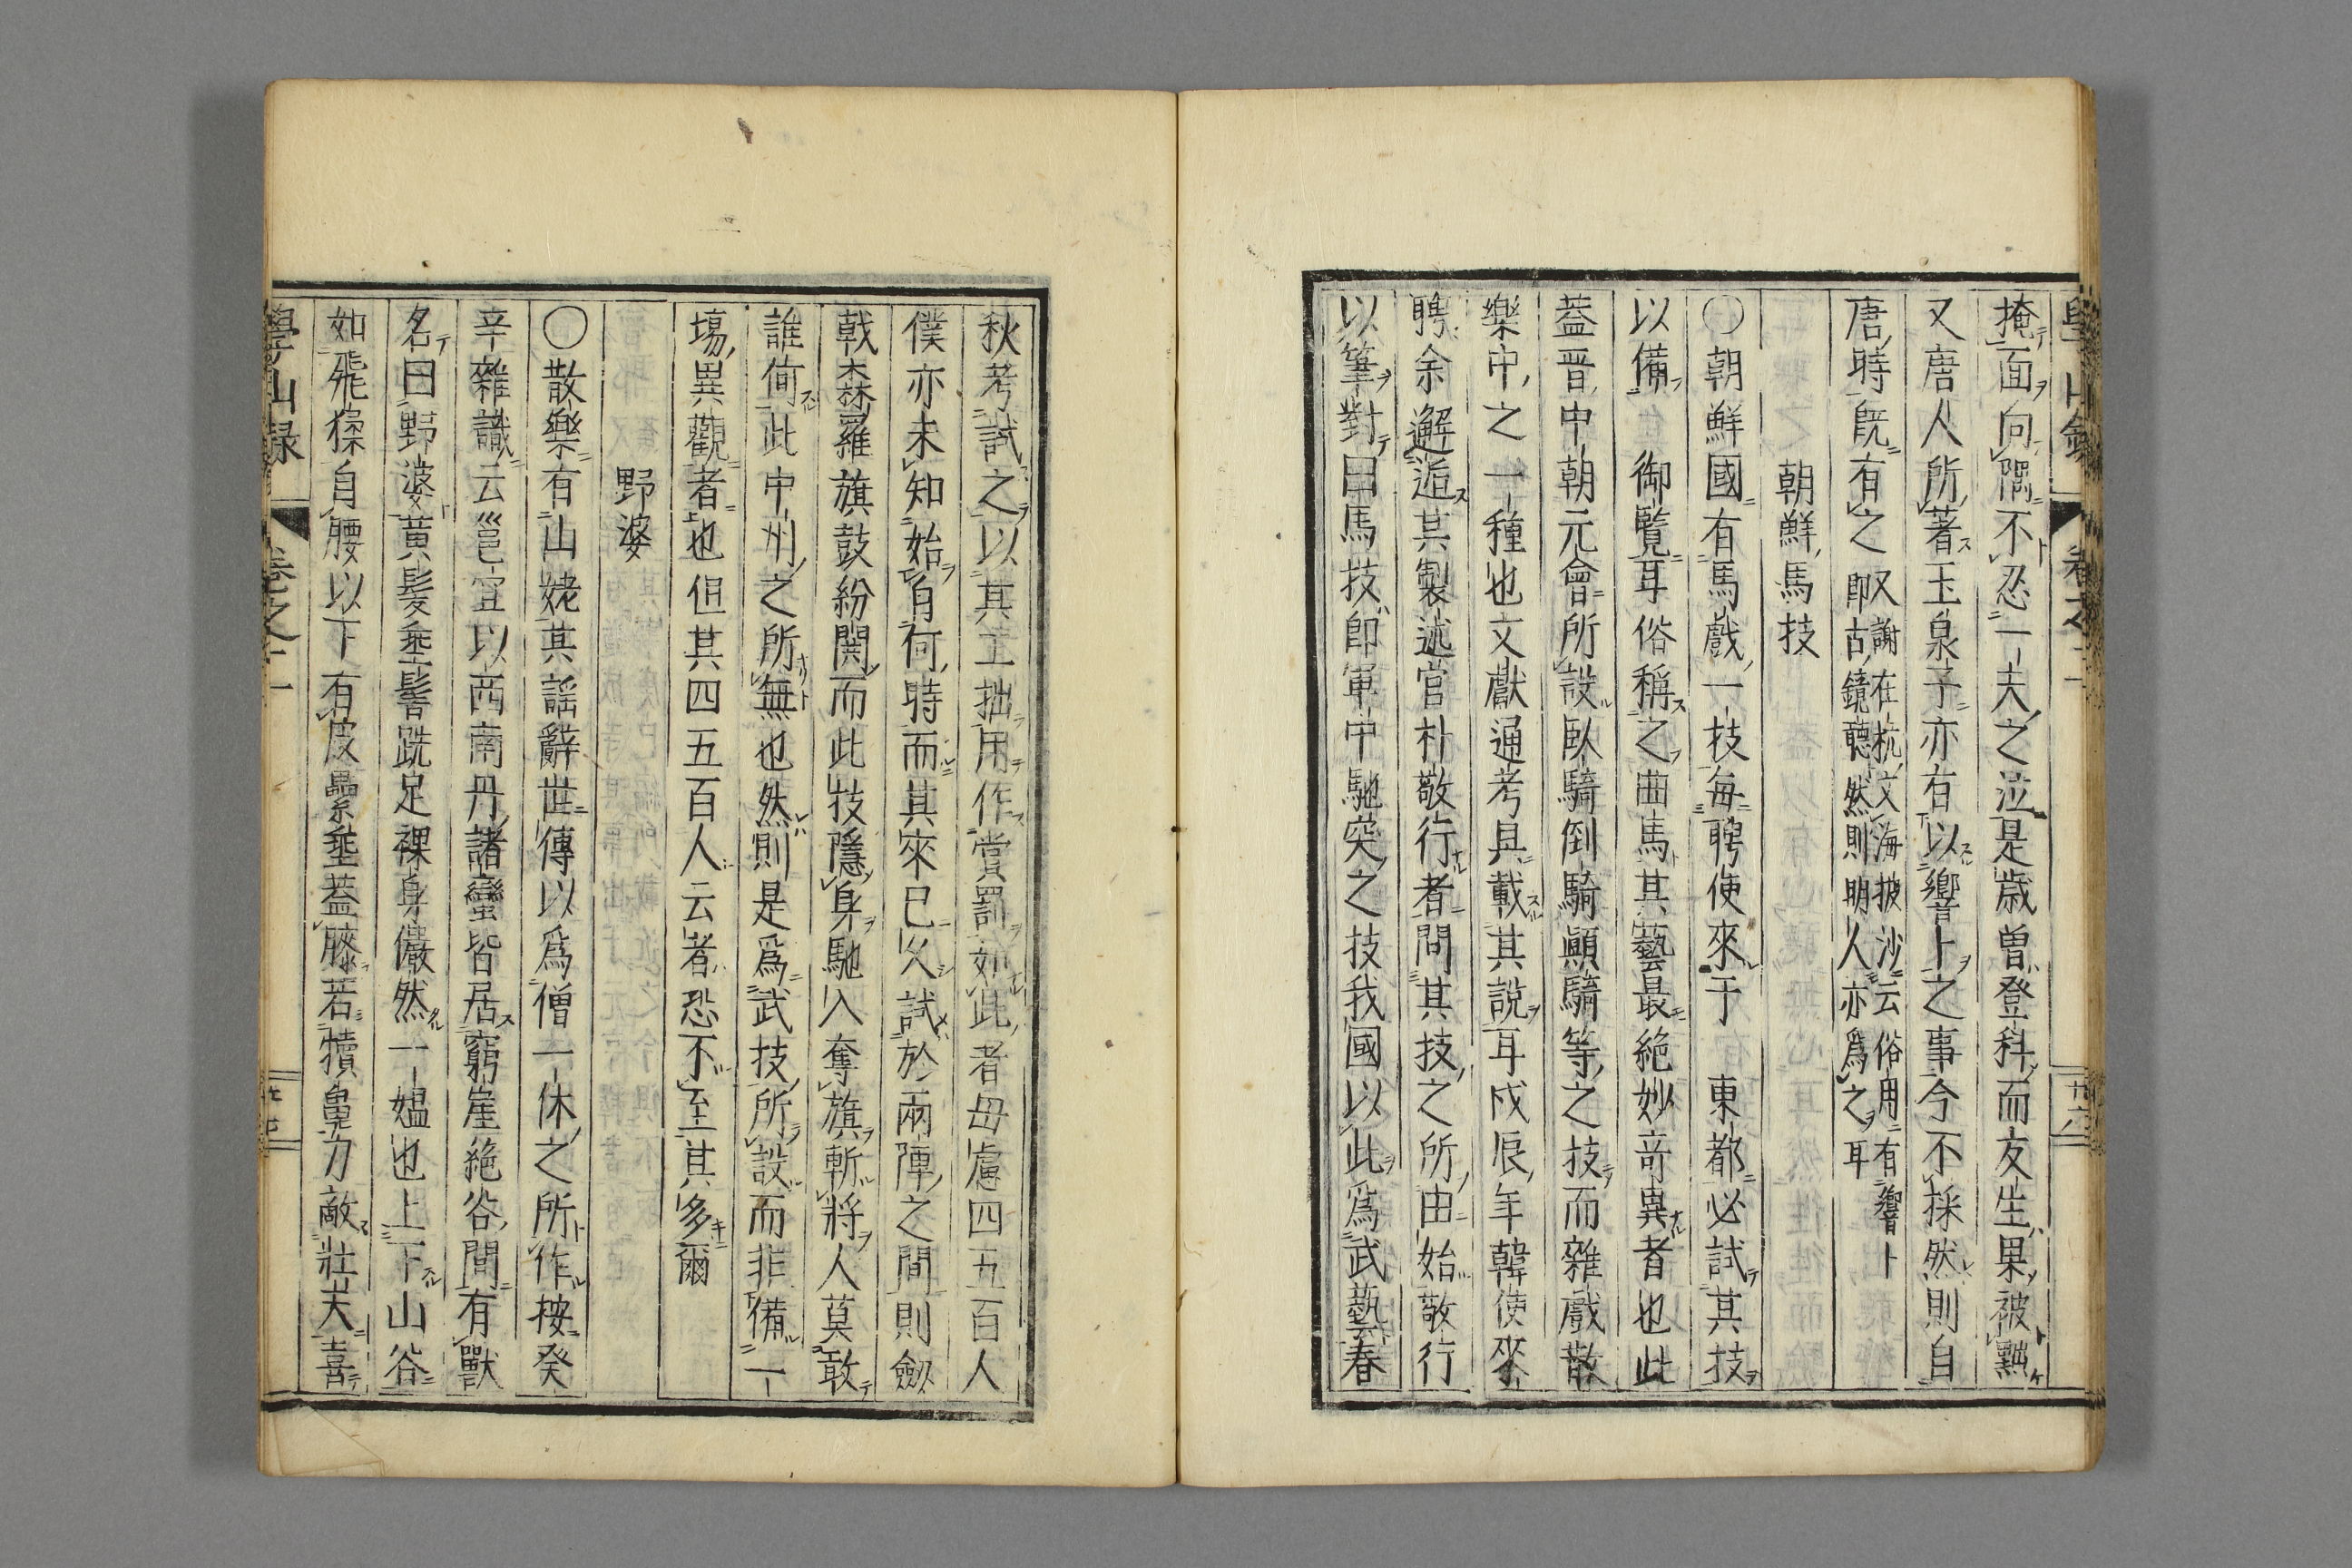 掩面向隅不忍一夫之泣是歳曽登科而友生果被黜
又唐人所著玉泉子亦有以響卜之事今不採然則自
唐時既有之又謝在杭文海披沙云俗用有響卜即古鏡聽然則明人亦爲之耳
朝鮮馬技
〇朝鮮國有馬戲一技每聘使來于東都必試其技
以備御覽耳俗稱之曲馬其藝最絶妙竒異者也此
蓋晋中朝元會所設臥騎倒騎顚騎等之技而雜戲散
樂中之一種也文獻通考具載其說耳戊辰年韓使來
聘余邂逅其製述官朴敬行者問其技之所由始敬行
以筆對曰馬技即軍中馳突之技我國以此爲武藝春
秋考試之以其工拙用作賞罰如此者毋慮四五百人
僕亦未知始自何時而其來已久試於兩陣之間則劔
戟森羅旗鼓紛䦨而此技隱身馳入奪旗斬將人莫敢
誰何此中州之所無也然則是爲武技所設而非備一
塲異觀者也但其四五百人云者恐不至其多爾
野婆
〇散樂有山姥其謡辭世傳以爲僧一休之所作桉癸
辛雜識云邕宜以西南丹諸蠻皆居窮崖絶谷間有獸
名曰野婆黄髪垂髻跣足裸身儼然一媼也上下山谷
如飛猱自腰以下有皮纍垂蓋膝若犢鼻力敵壯夫喜
學山録
卷之二